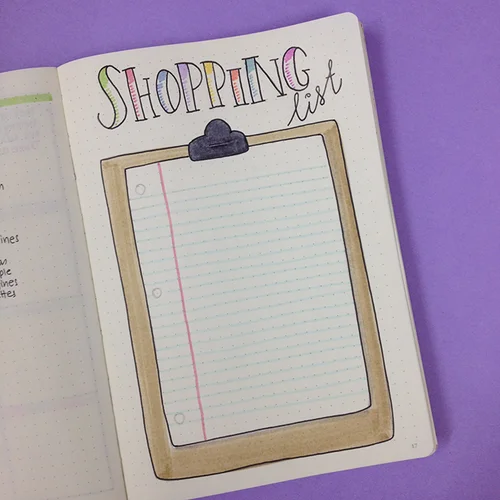 SHOPPING
list
ines
ple
ines